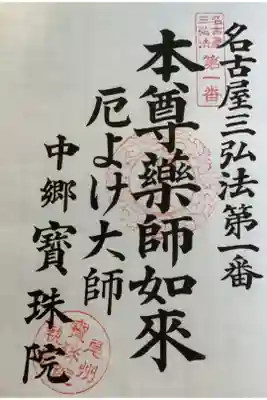 名古屋三弘法第一番
名古屋
三弘法
第一番
本尊藥師如來
厄よけ大師
中郷寳珠院